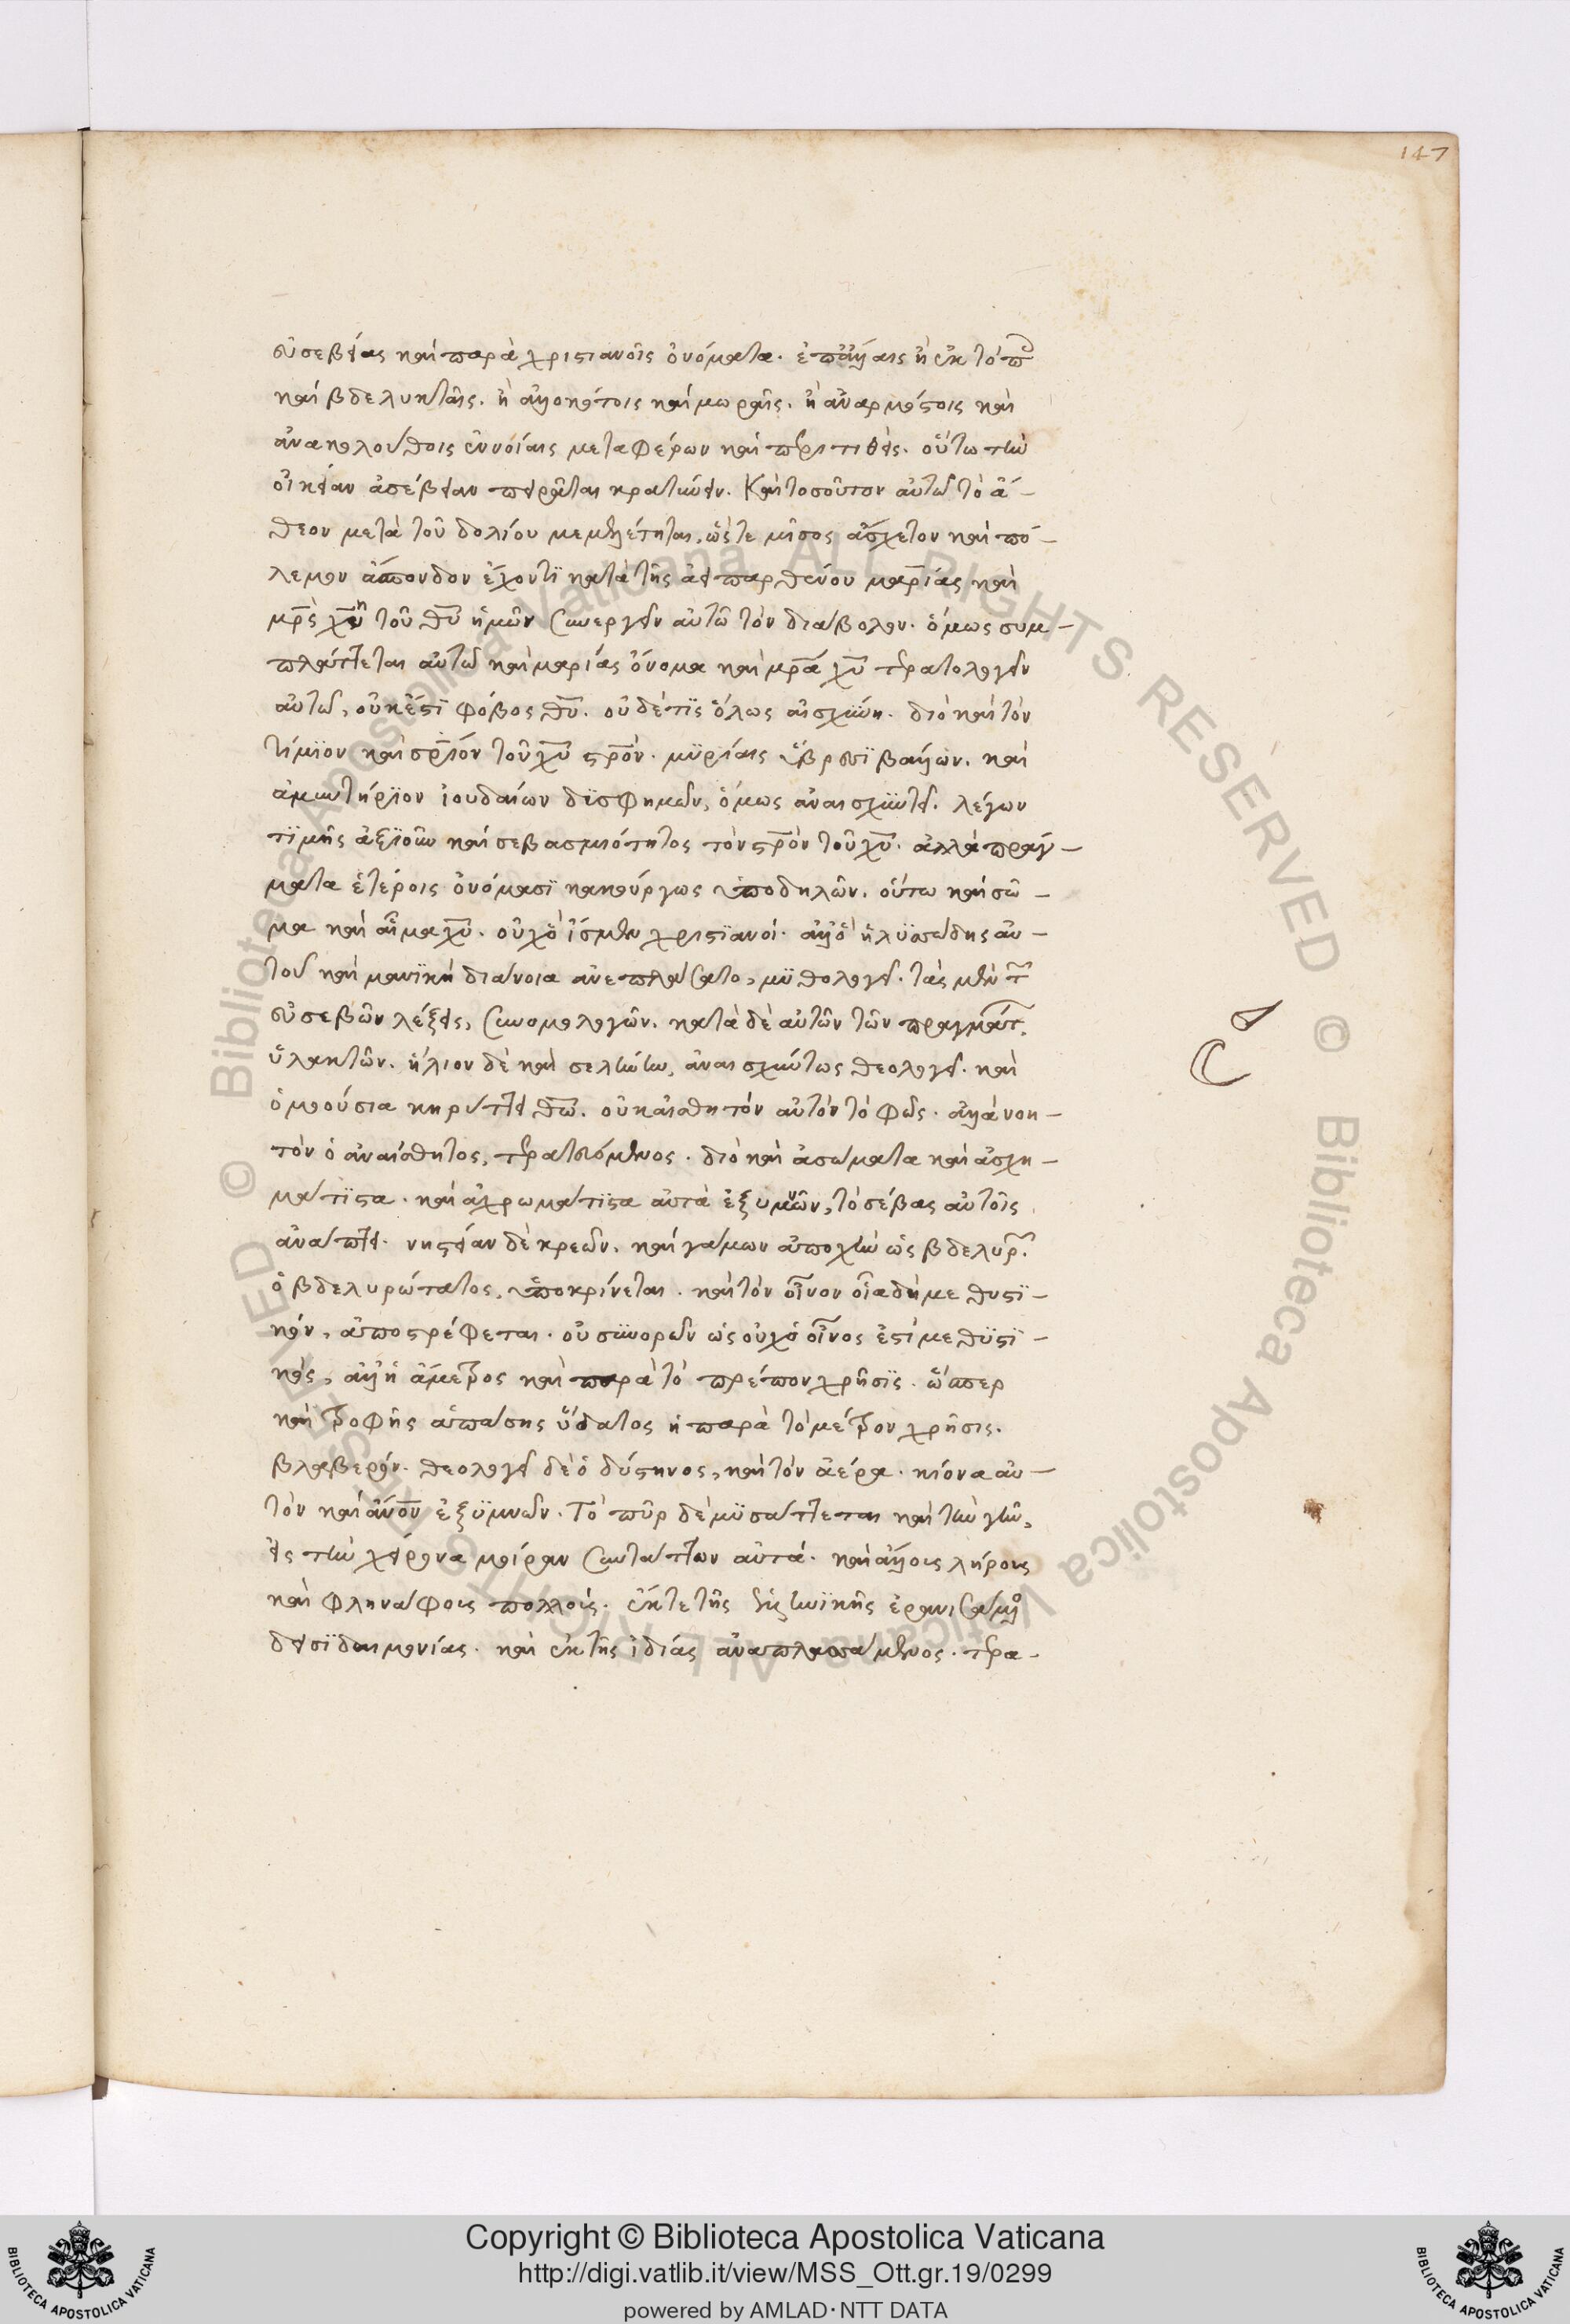 147
εὐσεβείας καὶ παρὰ χριστιανοῖς ὀνόματα. ἐπ' ἄλλαις ἢ ἐκτόπ
καὶ βδελυκταῖς. ἢ ἀλλοκότοις καὶ μωραῖς. ἢ ἀναρμόστοις καὶ
ἀνακολούθοις ἐννοίαις μεταφέρων καὶ περιτιθείς. οὕτω τὴν
οἰκείαν ἀσέβειαν πειρᾶται κρατύνειν. Καὶ τοσοῦτον αὐτῶ τὸ ἄ-
θεον μετὰ τοῦ δολίου μεμελέτηται, ὥστε μῖσος ἄσχετον καὶ πό-
λεμον ἄσπονδον ἔχοντι κατὰ τῆς ἀειπαρθένου μαρίας καὶ
μρς χυ τοῦ θυ ἡμῶν συνεργεῖν αὐτῶ τὸν διάβολον. ὅμως συμ-
πλάττεται αὐτῶ καὶ μαρίας ὄνομα καὶ μρα χυ τερατολογεῖν
αὐτῶ, οὐκ ἔστι φόβος θυ. οὐδέ τις ὅλως αἰσχύνη. διὸ καὶ τὸν
τίμιον καὶ σριον τοῦ χυ στρον. μυρίαις ὕβρεσι βάλλων. καὶ
ἀμυντήριον ἰουδαίων δισφημῶν, ὅμως ἀναισχυντεῖ. λέγων
τιμῆς ἀξιοῦν καὶ σεβασμιότητος τὸν στρον τοῦ χυ. ἀλλὰ πράγ-
ματα ἑτέροις ὀνόμασι κακούργως ὑποδηλῶν. οὕτω καὶ σῶ-
μα καὶ αἷμα χυ. οὐχ ὃ ἴσμεν χριστιανοί. ἀλλ' ὃ ἡ λυσσώδης αὐ-
τοῦ καὶ μανικὴ διάνοια ἀνεπλάσατο, μυθολογεῖ. τὰς μὲν τ
εὐσεβῶν λέξεις, συνομολογῶν. κατὰ δὲ αὐτῶν τῶν πραγμάτ.
ὑλακτῶν. ἥλιον δὲ καὶ σελήνην, ἀναισχύντως θεολογεῖ. καὶ
ὁμοούσια κηρύττει θω. οὐκ αἰσθητὸν αὐτὸν τὸ φῶς. ἀλλὰ νοη-
τὸν ὁ ἀναίσθητος, τερατευόμενος. διὸ καὶ ἀσώματα καὶ ἀσχη-
μάτιστα. καὶ ἀχρωμάτιστα αὐτὰ ἐξυμνῶν, τὸ σέβας αὐτοῖς
ἀνάπτει. νηστείαν δὲ κρεῶν. καὶ γάμων ἀποχὴν ὡς βδελυρ.
ὁ βδελυρώτατος, ὑποκρίνεται. καὶ τὸν οἶνον οἷα δὴ μεθυστι-
κόν, ἀποστρέφεται. οὐ συνορῶν ὡς οὐχ ὁ οἶνος ἐστὶ μεθυστι-
κός, ἀλλ' ἡ ἄμετρος καὶ παρὰ τὸ πρέπον χρῆσις. ὥσπερ
καὶ τροφῆς ἁπάσης ὕδατος ἡ παρὰ τὸ μέτρον χρῆσις.
βλαβερόν. θεολογεῖ δὲ ὁ δύστηνος, καὶ τὸν ἀέρα. κίονα αὐ-
τὸν καὶ ἄνον ἐξυμνῶν. Τὸ πῦρ δὲ μυσάττεται καὶ τὴν γῆν,
εἰς τὴν χείρονα μοῖραν συντάττων αὐτά. καὶ ἄλλοις λήροις
καὶ φληνάφοις πολλοῖς. ἔκ τε τῆς ἑλληνικῆς ἐρανισάμενος
δεισιδαιμονίας. καὶ ἐκ τῆς ἰδίας ἀναπλασάμενος. τερα-
© Biblioteca Apostolica Vaticana ALL RIGHTS RESERVED © Biblioteca Apostolica Vaticana ALL RIGHTS RESERVED
Copyright © Biblioteca Apostolica Vaticana
http://digi.vatlib.it/view/MSS_Ott.gr.19/0299
powered by AMLAD·NTT DATA
BIBLIOTECA APOSTOLICA VATICANA
BIBLIOTECA APOSTOLICA VATICANA